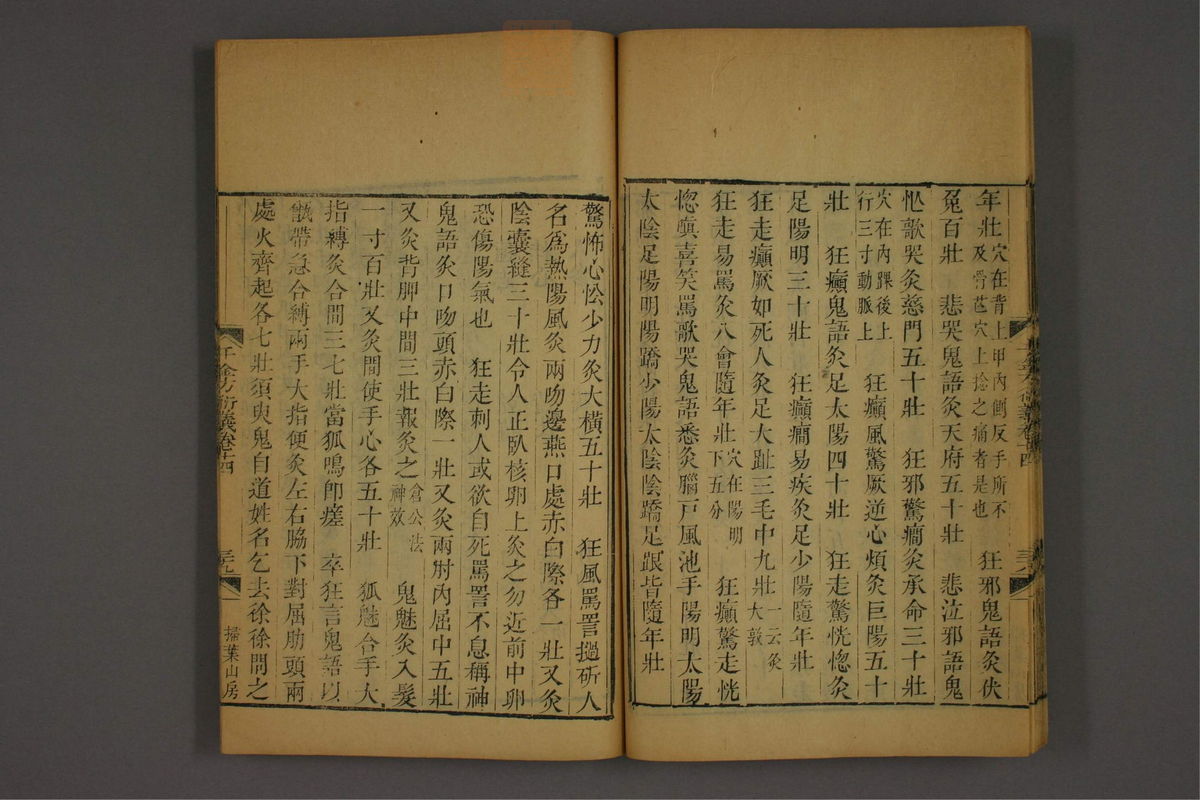 年壯穴在背上甲內側反手所不及骨芭穴上捻之痛者是也　狂邪鬼語灸伏
兔百壯　悲哭鬼語灸天府五十壯　悲泣邪語鬼
忪歌哭灸慈門五十壯　狂邪驚癎灸承命三十壯
穴在內踝後上行三寸動脈上　狂癲風驚厥逆心煩灸巨陽五十
壯　狂癲鬼語灸足太陽四十壯　狂走驚恍惚灸
足陽明三十壯　狂癲癎易疾灸足少陽隨年壯
狂走癲厥如死人灸足大趾三毛中九壯一云灸大敦
狂走易罵灸八會隨年壯穴在陽明下五分　狂癲驚走恍
惚瘨喜笑罵歌哭鬼語悉灸腦戸風池手陽明太陽
太陰足陽明陽蹻少陽太陰陰蹻足跟皆隨年壯
千金方衍義卷十四
三八
驚怖心忪少力灸大橫五十壯　狂風罵詈撾斫人
名爲熱陽風灸兩吻邊燕口處赤白際各一壯又灸
陰囊縫三十壯令人正臥核卵上灸之勿近前中卵
恐傷陽氣也　狂走刺人或欲自死罵詈不息稱神
鬼語灸口吻頭赤白際一壯又灸兩肘內屈中五壯
又灸背胛中間三壯報灸之倉公法神效　鬼魅灸入髮
一寸百壯又灸間使手心各五十壯　狐魅合手大
指縛灸合間三七壯當狐鳴即瘥　卒狂言鬼語以
甑帶急合縛兩手大指便灸左右脇下對屈肋頭兩
處火齊起各七壯須臾鬼自道姓名乞去徐徐問之
千金方衍義卷十四
三九
掃葉山房